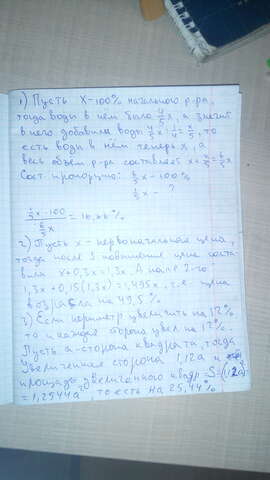 1) Пусть x - 100% начального р-ра,
тогда воды в нем было 4/5 x, а значит
в него добавили воды 4/5 x · 1/4 = x/5, то
есть воды в нем теперь x, а
весь объем р-ра составляет x + x/5 = 6/5 x
Сост. пропорцию: 6/5 x - 100%
1/5 x - ?
(1/5 x · 100) / (6/5 x) = 16,66 %
2) Пусть x - первоначальная цена,
тогда после 1 повышения цена соста-
вила x + 0,3x = 1,3x. А после 2-го
1,3x + 0,15(1,3x) = 1,495x, т.е. цена
возрасла на 49,5 %.
3) Если периметр увеличить на 12%,
то и каждая сторона увел на 12%.
Пусть a - сторона квадрата, тогда
увеличенная сторона 1,12a и
площадь увеличенного квадр = S = (1,12a)²
= 1,2544a², то есть на 25,44 %